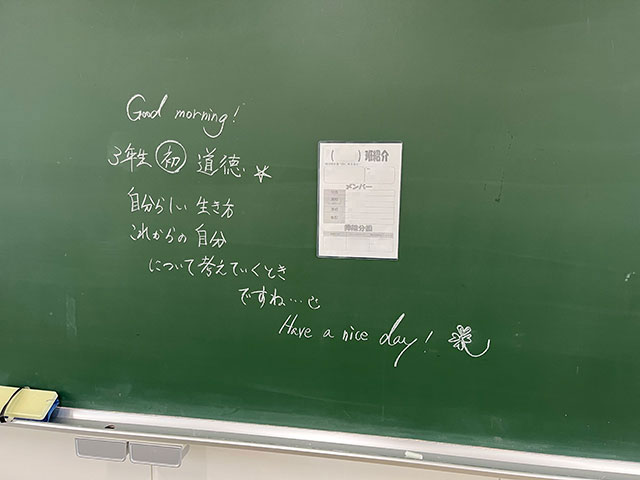 Good morning!
3年生 初 道徳
自分らしい生き方
これからの自分
について考えていくとき
ですね…
Have a nice day!
( )班紹介
メンバー